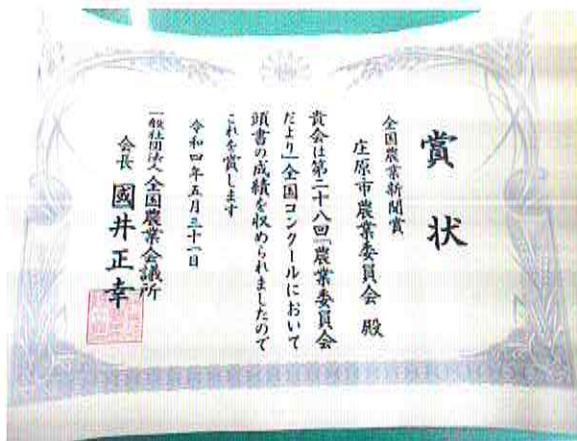 賞状
全国農業新聞賞
庄原市農業委員会 殿
貴会は第二十八回「農業委員会
だより」全国コンクールにおいて
頭書の成績を収められましたので
これを賞します
令和四年五月三十一日
一般社団法人全国農業会議所
会長 國井正幸